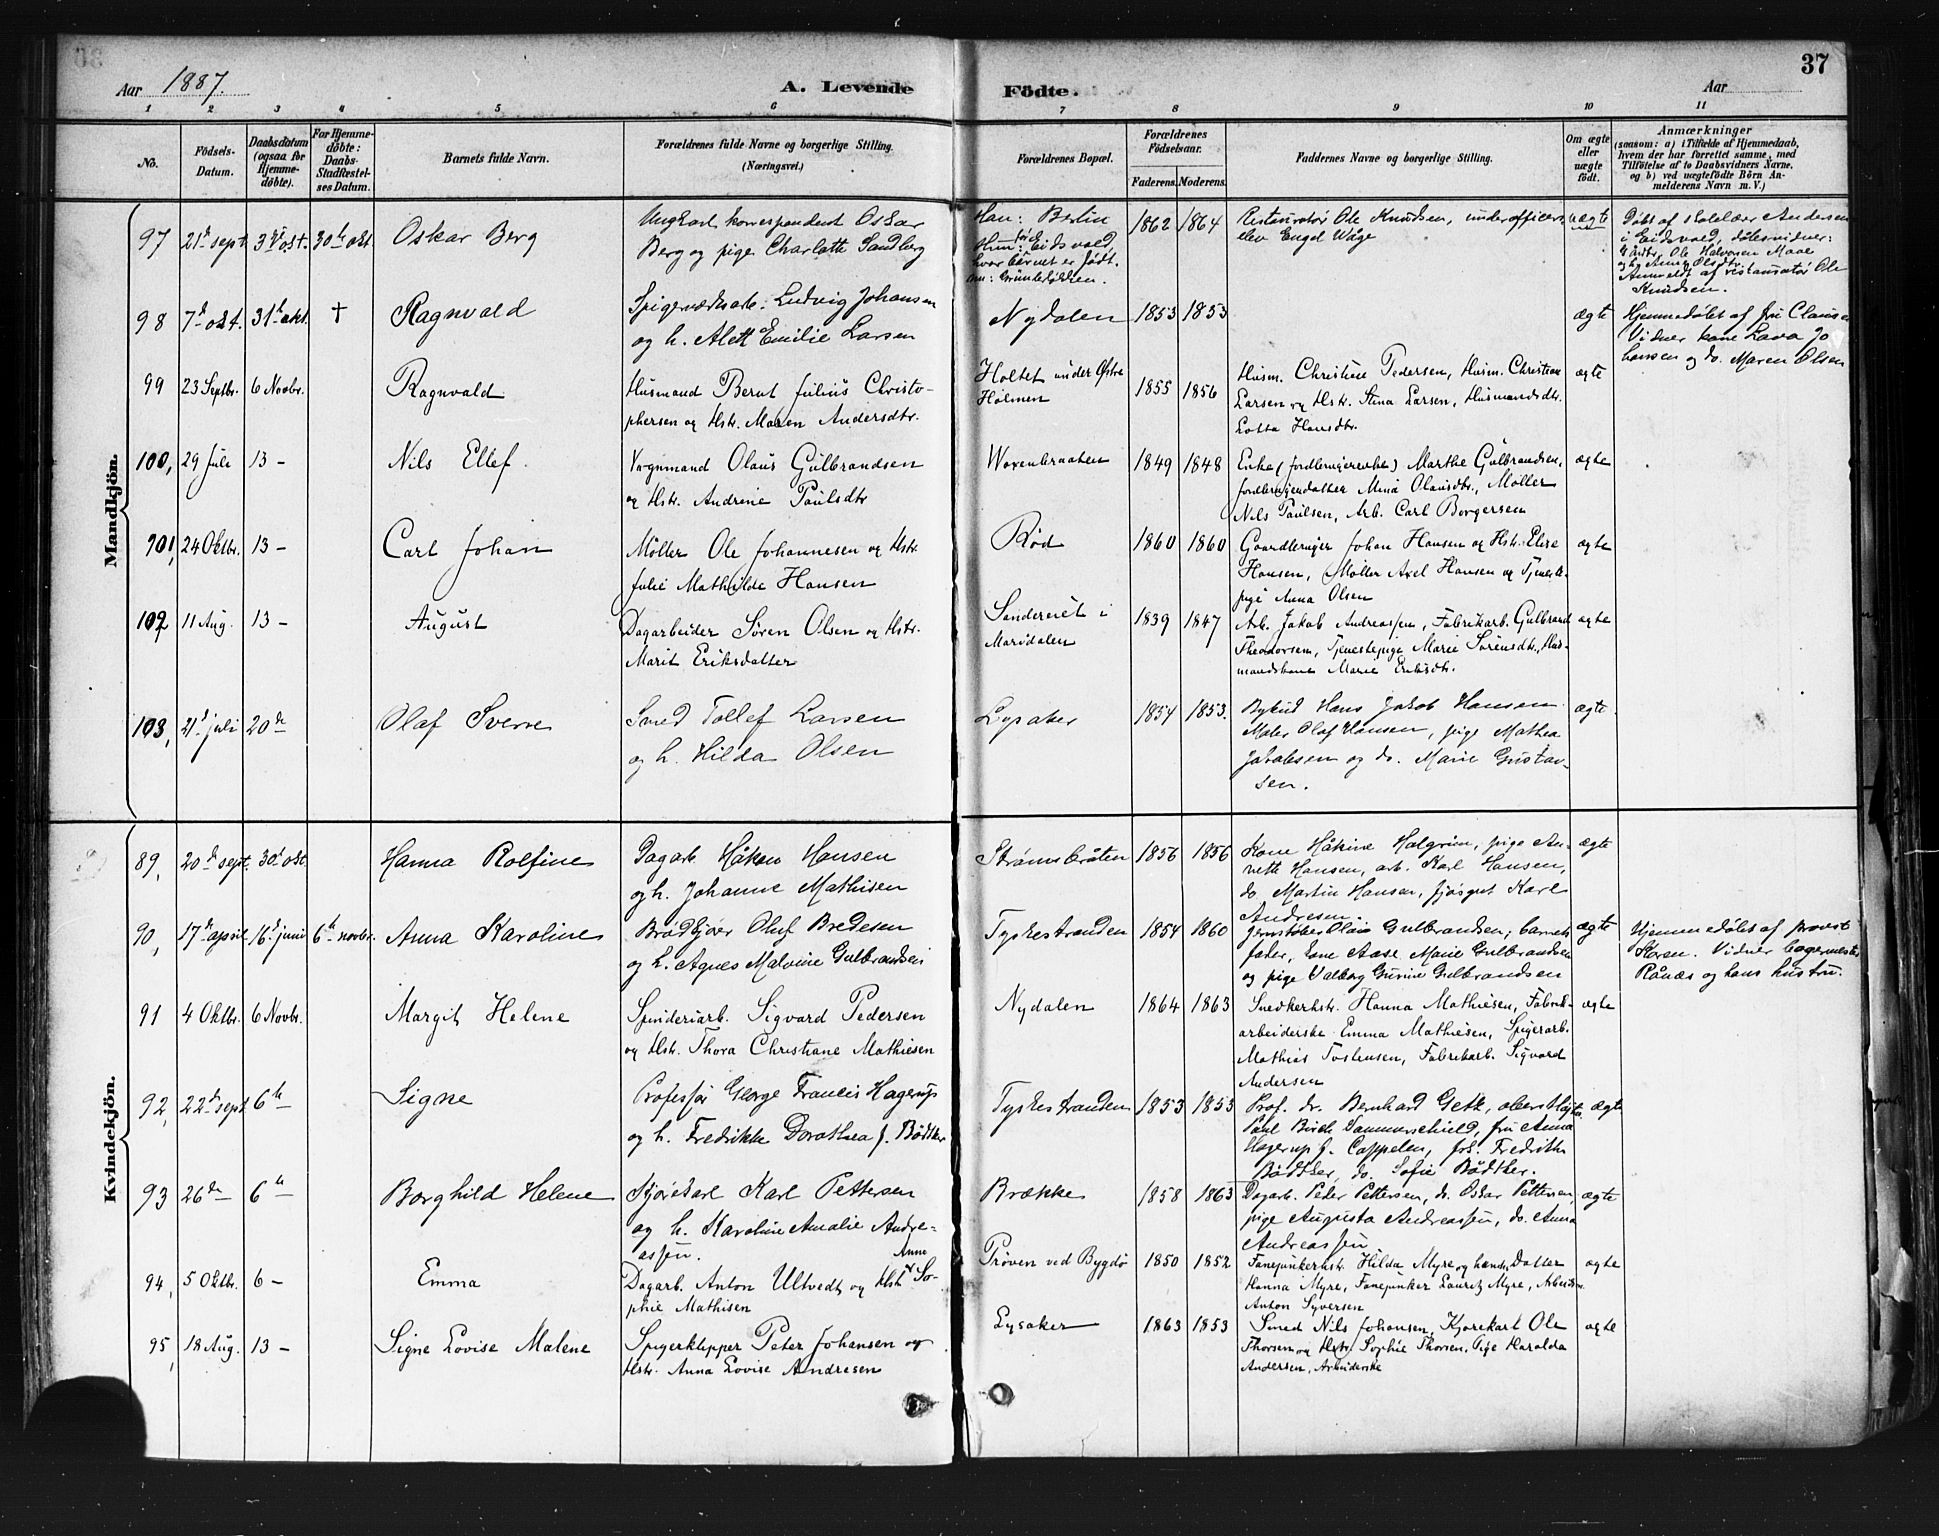 37
Aar 1887.
A. Levende
Födte.
Aar
1 2 3 4 5 6 7 8 9 10 11
No.
Födsels-Datum.
Daabsdatum (ogsaa for Hjemme-döbte).
For Hjemme-döbte: Daabs-Stadfæstel-ses Datum.
Barnets fulde Navn.
Forældrenes fulde Navne og borgerlige Stilling. (Næringsvei.)
Forældrenes Bopæl.
Forældrenes Födselsaar.
Faderens. Moderens.
Faddernes Navne og borgerlige Stilling.
Om ægte eller uægte födt.
Anmærkninger
(saasom: a) i Tilfælde af Hjemmedaab, hvem der har forrettet samme, med Tilföielse af to Daabsvidners Navne, og b) ved uægtefödte Börn Anmelderens Navn m. V.)
Mandkjön.
97 21d sept. 30th okt Oskar Berg
Ungkarl korrespondent Oskar
Berg og pige Charlotte Sandberg
Han: Berlin
Hun: Eidsvold,
hvor barnet er født.
1862 1864
Restauratør Ole Knudsen, underofficers
elev Engel Wåge
uægte
Døbt af skolelær Andersen
i Eidsvold, dåbsvidner:
Gårdbr. Ole Halvorsen Moae
og h. Anne Olsdtr.
Anmeldt af restauratør Ole
Knudsen.
98 7d okt. 31th okt. † Ragnvald
Spigerværksarb. Ludvig Johansen
og h. Alett Emilie Larsen
Nydalen 1853 1853 ægte
Hjemmedøbt af fru Clausen
Vidner kone Lava Jo
hansen og do. Maren Olsen
99 23 Septbr. 6 Novbr. Ragnvald
Husmand Bernt Julius Christo-
phersen og Hstr. Maren Andersdtr.
Holtet under Østre
Holmen
1855 1856
Husm. Christian Pedersen, Husm. Christian
Larsen og Hstr. Stina Larsen, Husmandsdtr.
Lotta Hansdtr.
ægte
100, 29 Juli 13 – Nils Ellef.
Vognmand Olaus Gulbrandsen
og Hstr. Andrine Paulsdtr
Woxenbraaten 1849 1848
Enke (fordlerugerenke) Marthe Gulbrandsen,
Mina Olausdtr., Møller
Nils Paulsen, Arb. Carl Borgersen
ægte
101, 24 Oktbr. 13 – Carl Johan
Møller Ole Johannesen og Hstr.
Julie Mathilde Hansen
Rød 1860 1860
Gaardbruger Johan Hansen og Hstr. Elise
Hansen, Møller Axel Hansen og Tjeneste-
pige Anna Olsen
ægte
102 11 Aug. 13 – August
Dagarbeider Søren Olsen og Hstr.
Marit Eriksdatter
Sanderuet i
Maridalen
1839 1847
Arb. Jakob Andreassen, Fabrikarb. Gulbrand
Theodorsen, Tjenestepige Marie Sørensdtr., Hus-
mandskone Marie Eriksdtr.
ægte
103, 21d juli 20de Olaf Sverre
Smed Tollef Larsen
og h. Hilda Olsen
Lysaker 1854 1853.
Bybud Hans Jakob Hansen
Maler Olaf Hansen, pige Mathea
Jakobsen og do. Marie Gustav-
sen.
ægte
Kvindekjön.
89, 20de sept. 30d okt Hanna Rolfine
Dagarb. Håkon Hansen
og h. Johanne Mathisen
Strømsbråten 1856 1856
Kone Håkine Halgrim, pige An-
nette Hansen, arb. Karl Hansen,
do. Martin Hansen, fjøsgut Karl
Andresen.
ægte
90, 17de april 16d juni 6th novbr. Anna Karoline
Brødkjører Oluf Bredesen
og h. Agnes Malvine Gulbrandsen
Tyskestranden 1854 1860
Jernstøber Olaus Gulbrandsen, barnets
fader, Lene Aase Marie Gulbrandsen
og pige Valborg Gurine Gulbrandsen
ægte
Hjemmedøbt af provst
Koren. Vidner bagermester
Rånæs og hans hustru.
91 4 Oktbr. 6 Novbr. Margit Helene
Spinderiarb. Sigvard Pedersen
og Hstr. Thora Christiane Mathiesen
Nydalen 1864 1863
Snedkerhstr. Hanna Mathiesen, Fabrik-
arbeiderske Emma Mathiesen, Spigerarb.
Mathias Tostensen, Fabrikarb. Sigvard
Andersen
ægte
92, 22d sept 6th Signe
Professor George Francis Hagerup
og h. Fredrikke Dorothea f. Bødtker
Tyskestranden 1853 1853
Prof. dr. Bernhard Getz, oberstløjtn.
Paul Birch Dammerschield, fru Anna
Hagerup f. Cappelen, frk. Fredrikke
Bødtker, do. Sofie Bødtker.
ægte
93 26de 6th Borghild Helene
Kjørekarl Karl Pettersen
og h. Karoline Amalie Andre-
assen.
Brække 1858 1863
Dagarb. Peder Pettersen, do. Oskar Pettersen,
pige Augusta Andreassen, do. Anna
Andreassen
ægte
94, 5 Oktbr. 6 – Emma
Dagarb. Anton Ultvedt og Hstr. Anne So-
phie Mathisen
Prøven ved Bygdø 1850 1852
Fanejunkerhstr. Hilda Myre og hendes Datter
Hanna Myre, Fanejunker Lauritz Myre, Arbeider
Anton Syversen
ægte
95, 18 Aug. 13 – Signe Lovise Malene
Spigerklipper Peter Johansen og
Hstr. Anna Lovise Andresen
Lysaker 1863 1853
Smed Nils Johansen, Kjørekarl Ole
Thorsen og Hstr. Sophie Thorsen, Pige Haralda
Andersen, Arbeiderske
ægte